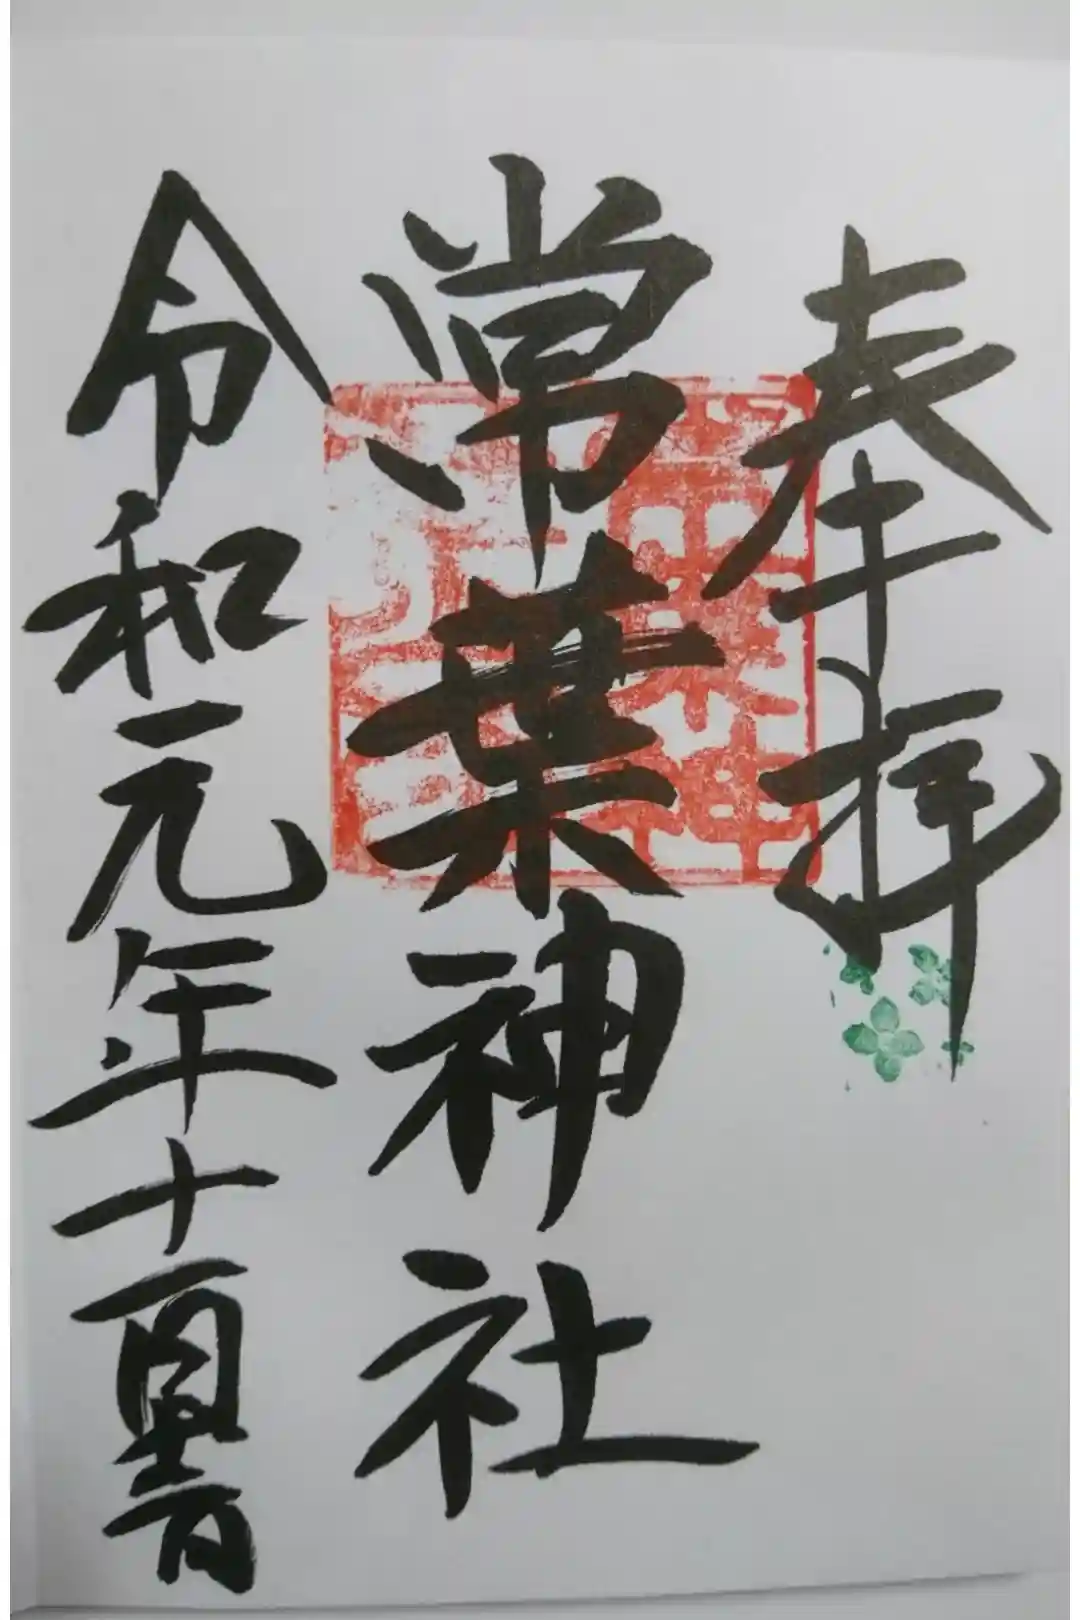 奉拝
常葉神社
令和元年十一月日